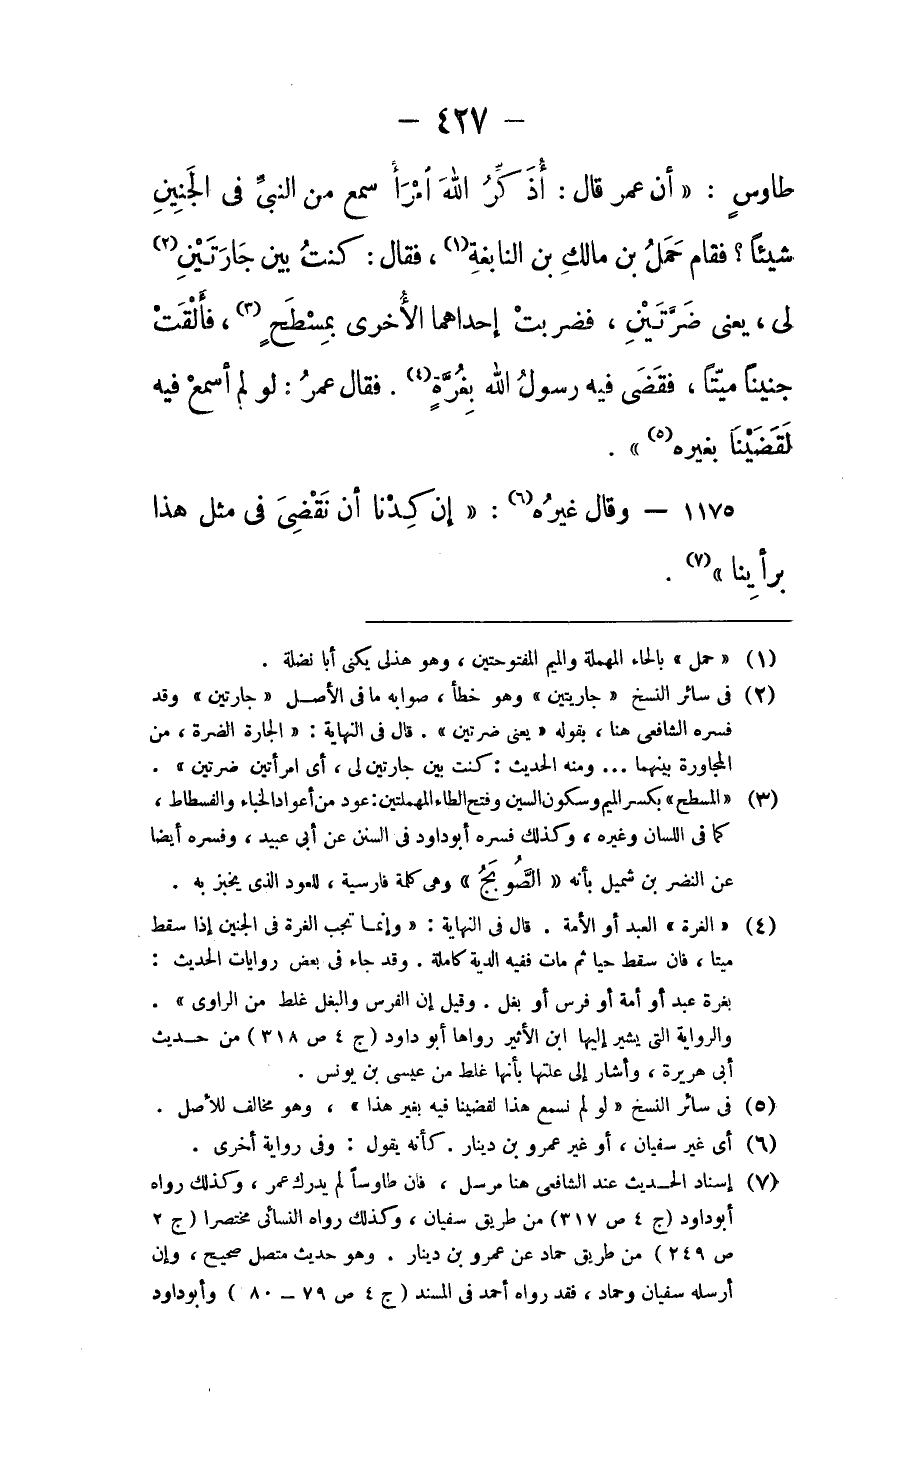 — ٤٢٧ —
طاوسٍ : « أن عمر قال : أُذَكِّرُ اللهَ آمْرَأً سمع من النبيِّ فى الجَنِينِ
شيئاً ؟ فقام حَمَلُ بن مالكِ بن النابغةِ(١) ، فقال : كنتُ بين جَارَتَيْنِ(٢)
لى ، يعنى ضَرَّتَيْنِ ، فضربتْ إحداهما الأُخرى بمِسْطَحٍ(٣) ، فأَلْقَتْ
جنيناً ميّتاً ، فقَضَى فيه رسولُ الله بِغُرَّةٍ(٤) . فقال عمرُ : لو لم أسمعْ فيه
لَقَضَيْنَا بغيره(٥) » .
١١٧٥ — وقال غيرُه(٦) : « إن كِدْنا أن نَقْضِىَ فى مثل هذا
برأيِنا »(٧) .
(١) « حمل » بالحاء المهملة والميم المفتوحتين ، وهو هذلى يكنى أبا نضلة .
(٢) فى سائر النسخ « جاريتين » وهو خطأ ، صوابه ما فى الأصل « جارتين » وقد
فسره الشافعى هنا ، بقوله « يعنى ضرتين » . قال فى النهاية : « الجارة الضرة ، من
المجاورة بينهما ... ومنه الحديث : كنت بين جارتين لى ، أى امرأتين ضرتين » .
(٣) « المسطح » بكسر الميم وسكون السين وفتح الطاء المهملتين : عود من أعواد الخباء والفسطاط ،
كما فى اللسان وغيره ، وكذلك فسره أبوداود فى السنن عن أبى عبيد ، وفسره أيضا
عن النضر بن شميل بأنه « الصُّوبَجُ » وهى كلمة فارسية ، للعود الذى يخبز به .
(٤) « الغرة » العبد أو الأمة . قال فى النهاية : « وإنما تجب الغرة فى الجنين إذا سقط
ميتا ، فان سقط حيا ثم مات ففيه الدية كاملة . وقد جاء فى بعض روايات الحديث :
بغرة عبد أو أمة أو فرس أو بغل . وقيل إن الفرس والبغل غلط من الراوى » .
والرواية التى يشير إليها ابن الأثير رواها أبو داود (ج ٤ ص ٣١٨) من حديث
أبى هريرة ، وأشار إلى علتها بأنها غلط من عيسى بن يونس .
(٥) فى سائر النسخ « لو لم نسمع هذا لقضينا فيه بغير هذا » ، وهو مخالف للأصل .
(٦) أى غير سفيان ، أو غير عمرو بن دينار . كأنه يقول : وفى رواية أخرى .
(٧) إسناد الحديث عند الشافعى هنا مرسل ، فان طاوساً لم يدرك عمر ، وكذلك رواه
أبوداود (ج ٤ ص ٣١٧) من طريق سفيان ، وكذلك رواه النسائى مختصرا (ج ٢
ص ٢٤٩) من طريق حماد عن عمرو بن دينار . وهو حديث متصل صحيح ، وإن
أرسله سفيان وحماد ، فقد رواه أحمد فى المسند (ج ٤ ص ٧٩ – ٨٠) وأبوداود